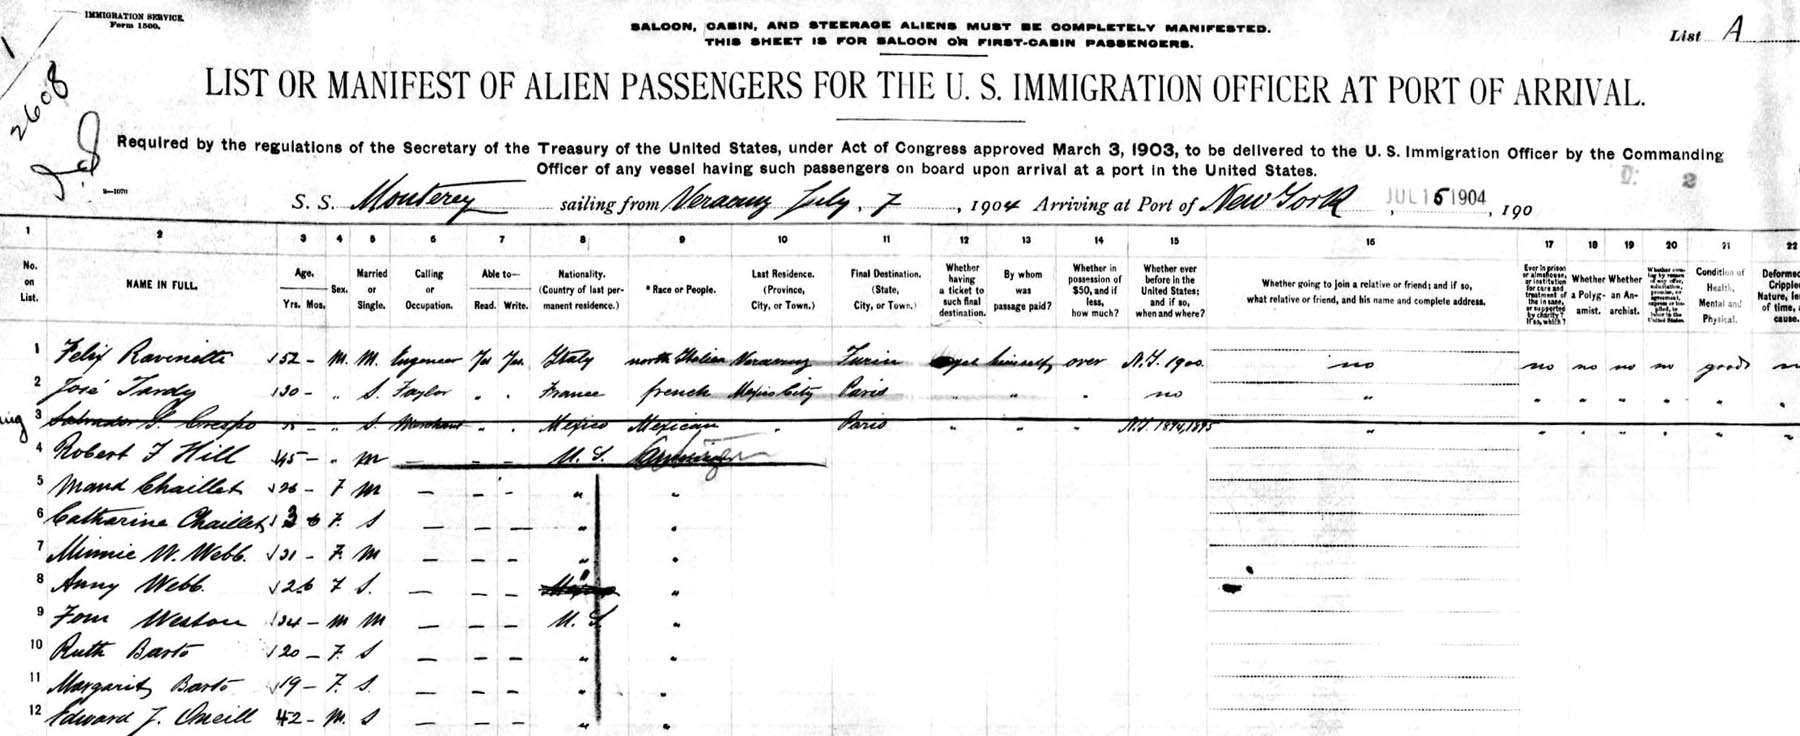 IMMIGRATION SERVICE.
Form 1500.
SALOON, CABIN, AND STEERAGE ALIENS MUST BE COMPLETELY MANIFESTED.
THIS SHEET IS FOR SALOON OR FIRST-CABIN PASSENGERS.
List A
2608
LIST OR MANIFEST OF ALIEN PASSENGERS FOR THE U. S. IMMIGRATION OFFICER AT PORT OF ARRIVAL.
Required by the regulations of the Secretary of the Treasury of the United States, under Act of Congress approved March 3, 1903, to be delivered to the U. S. Immigration Officer by the Commanding
Officer of any vessel having such passengers on board upon arrival at a port in the United States.
S. S. Monterey sailing from Veracruz July, 7, 1904 Arriving at Port of New York, JUL 15 1904, 190
1 2 3 4 5 6 7 8 9 10 11 12 13 14 15 16 17 18 19 20 21 22
No. on List. NAME IN FULL. Age. Yrs. Mos. Sex. Married or Single. Calling or Occupation. Able to— Read. Write. Nationality. (Country of last permanent residence.) *Race or People. Last Residence. (Province, City, or Town.) Final Destination. (State, City, or Town.) Whether having a ticket to such final destination. By whom was passage paid? Whether in possession of $50, and if less, how much? Whether ever before in the United States; and if so, when and where? Whether going to join a relative or friend; and if so, what relative or friend, and his name and complete address. Ever in prison or almshouse, or institution for care and treatment of the insane, or supported by charity? If so, which? Whether a Polygamist. Whether an Anarchist. Condition of Health, Mental and Physical.
1 Felix Ravinetti 52 – M. M. Engineer Yes Yes. Italy north Italian Veracruz Turin yes himself over N.Y. 1900. no no no no no good
2 José Tardy 30 – " S. Taylor " " France french Mexico City Paris " " " no " " " " " "
3 Salvador G Crespo – " S Merchant " " Mexico Mexican " Paris " " " N.Y. 1894,1895 " " " " " "
4 Robert F Hill 45 – " M – – – U. S.
5 Maud Chaillet 26 – F M – – – " "
6 Catharine Chaillet 3 6 F. S – – – " "
7 Minnie W. Webb. 31 – F. M – – – " "
8 Anny Webb. 26 F S. – – – " "
9 Tom Weston 34 – M M – – – U. S. "
10 Ruth Barto 20 – F. S – – – " "
11 Margarit Barto 19 – F. S. – – – " "
12 Edward J. Oneill 42 – M. S – – – " "